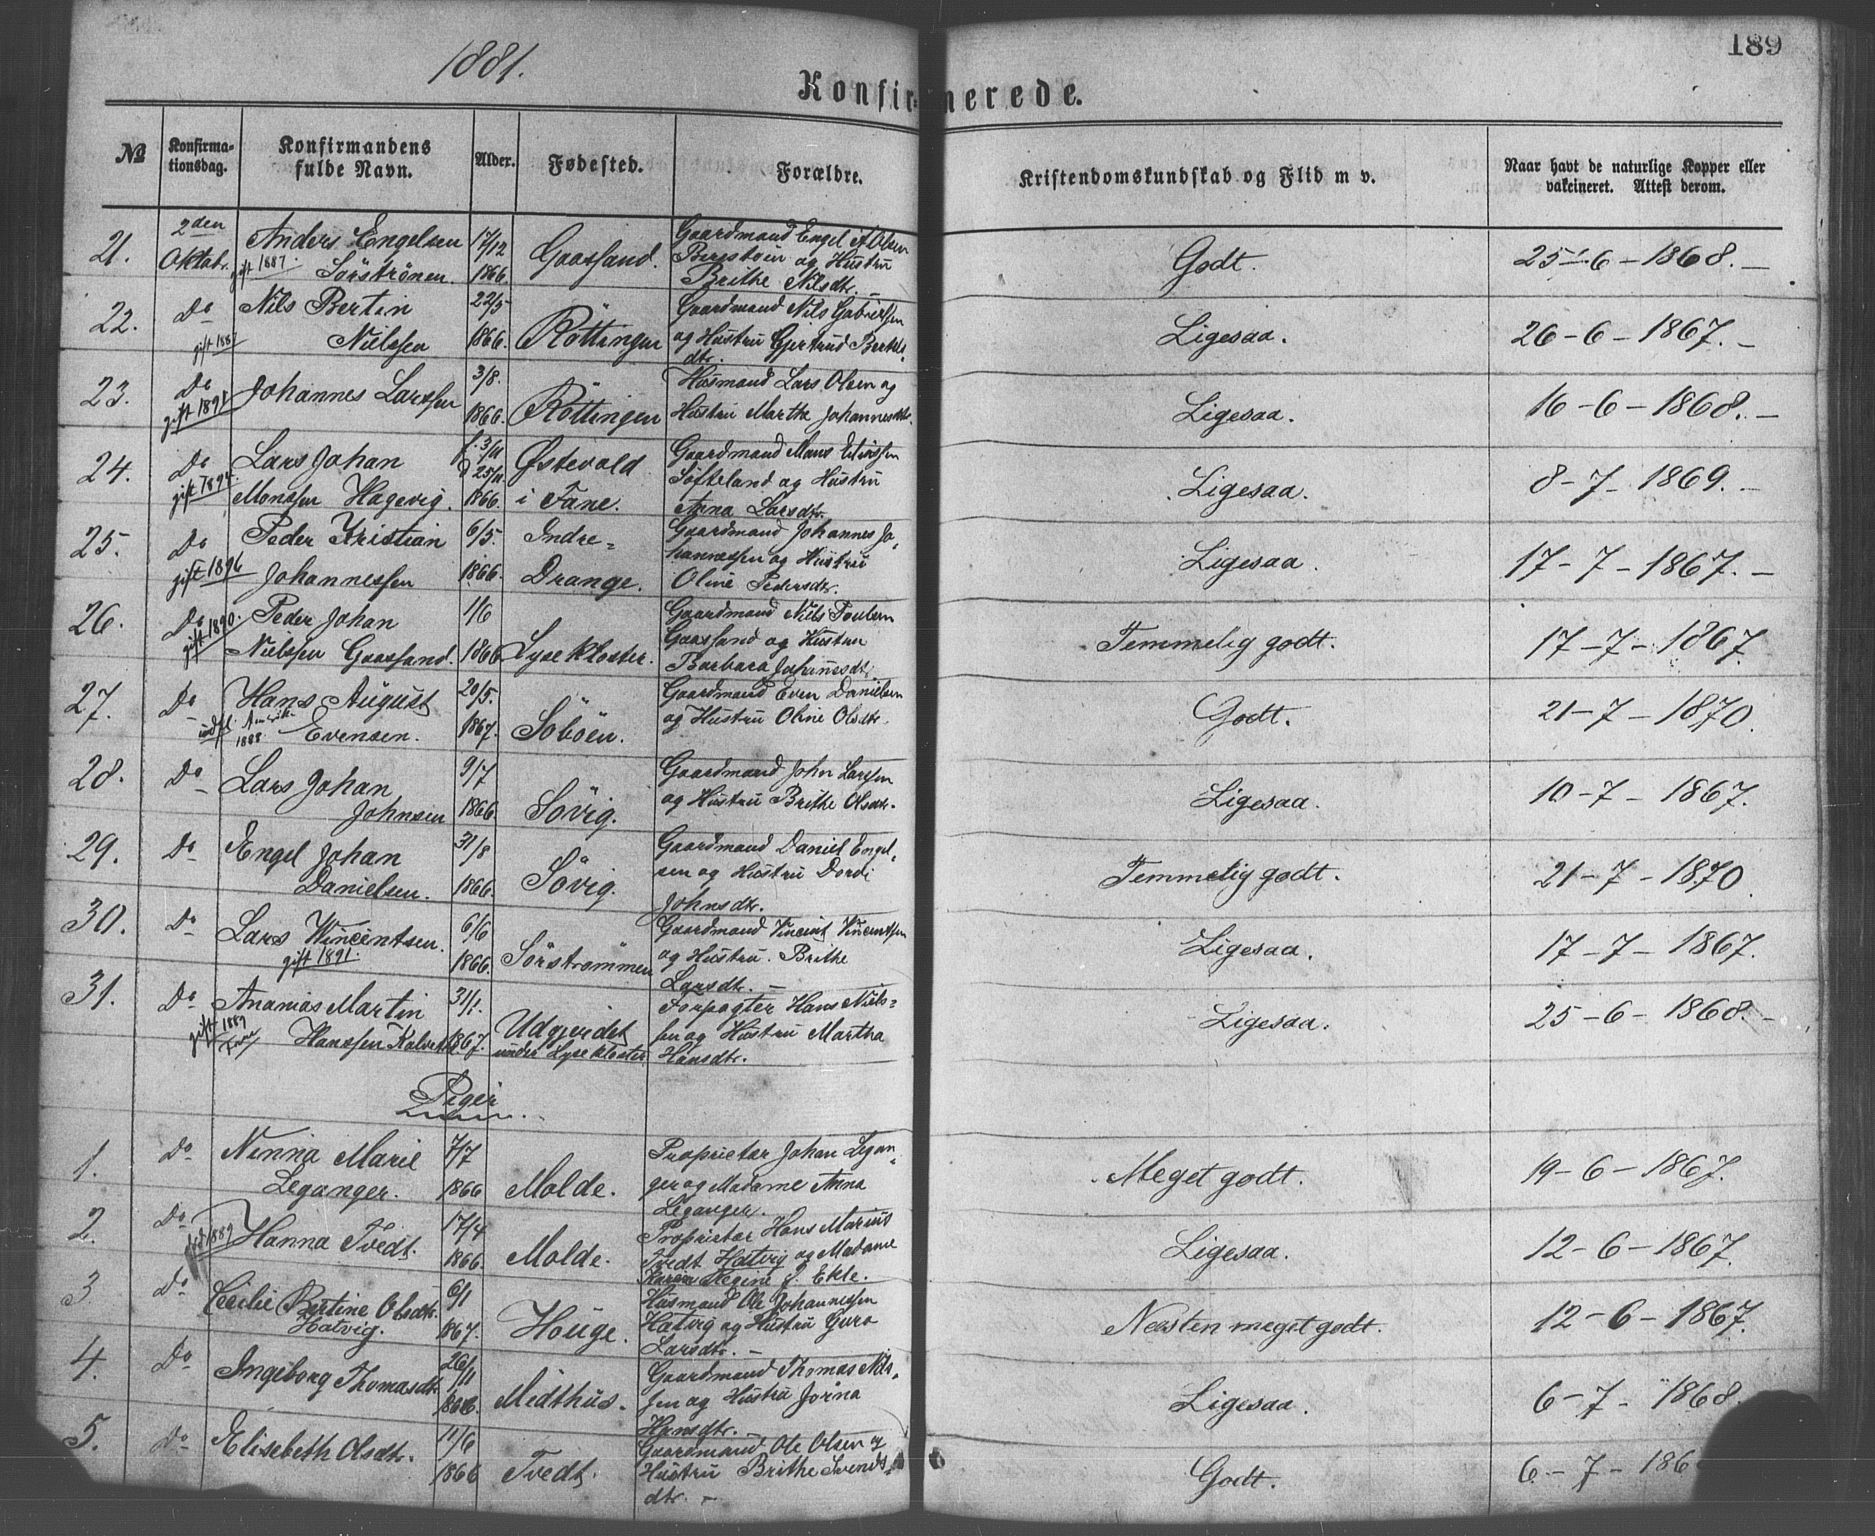 1881.
189
Konfirmerede.
№
Konfirma-
tionsdag.
Konfirmandens
fulde Navn.
Alder.
Fødested.
Forældre.
Kristendomskundskab og Flid m v.
Naar havt de naturlige Kopper eller
vakcineret. Attest derom.
21. 2den Oktobr. Anders Engelsen 17/12 Gaassand. Gaardmand Engel A Olsen
gift 1887. Sörströnen. 1866. og Hustru
Brithe Nilsdtr. Godt. 25-6-1868.
22. Do Nils Bertin 22/5 Röttingen Gaardmand Nils Gabrielsen
gift 1887 Nielssen 1866. og Hustru Gjertrud Bertels-
dtr. Ligesaa. 26-6-1867.
23. Do Johannes Larssen 3/8. Röttingen Husmand Lars Olsen og
gift 1891 1866. Hustru Marthe Johannesdtr. Ligesaa. 16-6-1868.
24. Do Lars Johan f. 3/11 Østevold Gaardmand Mons
gift 1894. Monssen Hagevig. d 25/11 1866. i Fane. Söfteland og Hustru
Anna Larsdtr. Ligesaa. 8-7-1869.
25. Do Peder Kristian 6/5. Indre- Gaardmand Johannes Jo-
gift 1896 Johannessen 1866. Drange. hannessen og Hustru
Oline Pedersdtr. Ligesaa. 17-7-1867.
26. Do Peder Johan 1/6 Lysekloster. Gaardmand Nils Poulsen
gift 1890. Nielssen Gaassand. 1866 Gaassand og Hustru
Barbara Johannesdtr. Temmelig godt. 17-7-1867.
27. Do Hans August 20/5. Söböen. Gaardmand Even Danielsen
udfl. Amerika 1888. Evensen. 1867. og Hustru Oline Olsdtr. Godt. 21-7-1870.
28. Do Lars Johan 9/7 Sövig. Gaardmand John Larssen
Johnsen 1866 og Hustru Brithe Olsdtr. Ligesaa. 10-7-1867.
29. Do Engel Johan 31/8 Sövig. Gaardmand Daniel Engel-
Danielsen. 1866. sen og Hustru Dordi
Johnsdtr. Temmelig godt. 21-7-1870
30. Do Lars Wincentsen. 6/6 Sörströmmen Gaardmand Vincent Vincentsen
gift 1891. 1866. og Hustru. Brithe
Larsdtr. Ligesaa. 17-7-1867.
31. Do Ananias Martin 31/1. Udgjerdet Forpagter Hans Niels-
gift 1889 Hanssen 1867. under Lysekloster sen og Hustru Martha
Hansdtr. Ligesaa. 25-6-1868.
Piger
1. Do Ninna Marie 7/7 Molde. Proprietær Johan Legan-
Leganger. 1866 ger og Madame Anna
Leganger. Meget godt. 19-6-1867.
2. Do Hanna Tvedt. 17/4 Molde. Proprietær Hans Marius
1889 1866. Tvedt Hatvig og Madame
Karen Regine J. Ekle. Ligesaa. 12-6-1867.
3 Do Cecilie Bertine Olsdtr. 6/1 Houge. Husmand Ole Johannessen
Hatvig. 1867. Hatvig og Hustru Guro
Larsdtr. Næsten meget godt. 12-6-1867.
4. Do Ingeborg Thomasdtr. 26/11 Midthus. Gaardmand Thomas Nils-
1866. sen og Hustru Jorina
Hansdtr. Ligesaa. 6-7-1868.
5. Do Elisebeth Olsdtr. 11/6 Tvedt. Gaardmand Ole Olsen og
1866 Hustru Brithe Svends-
dtr. Godt. 6-7-186